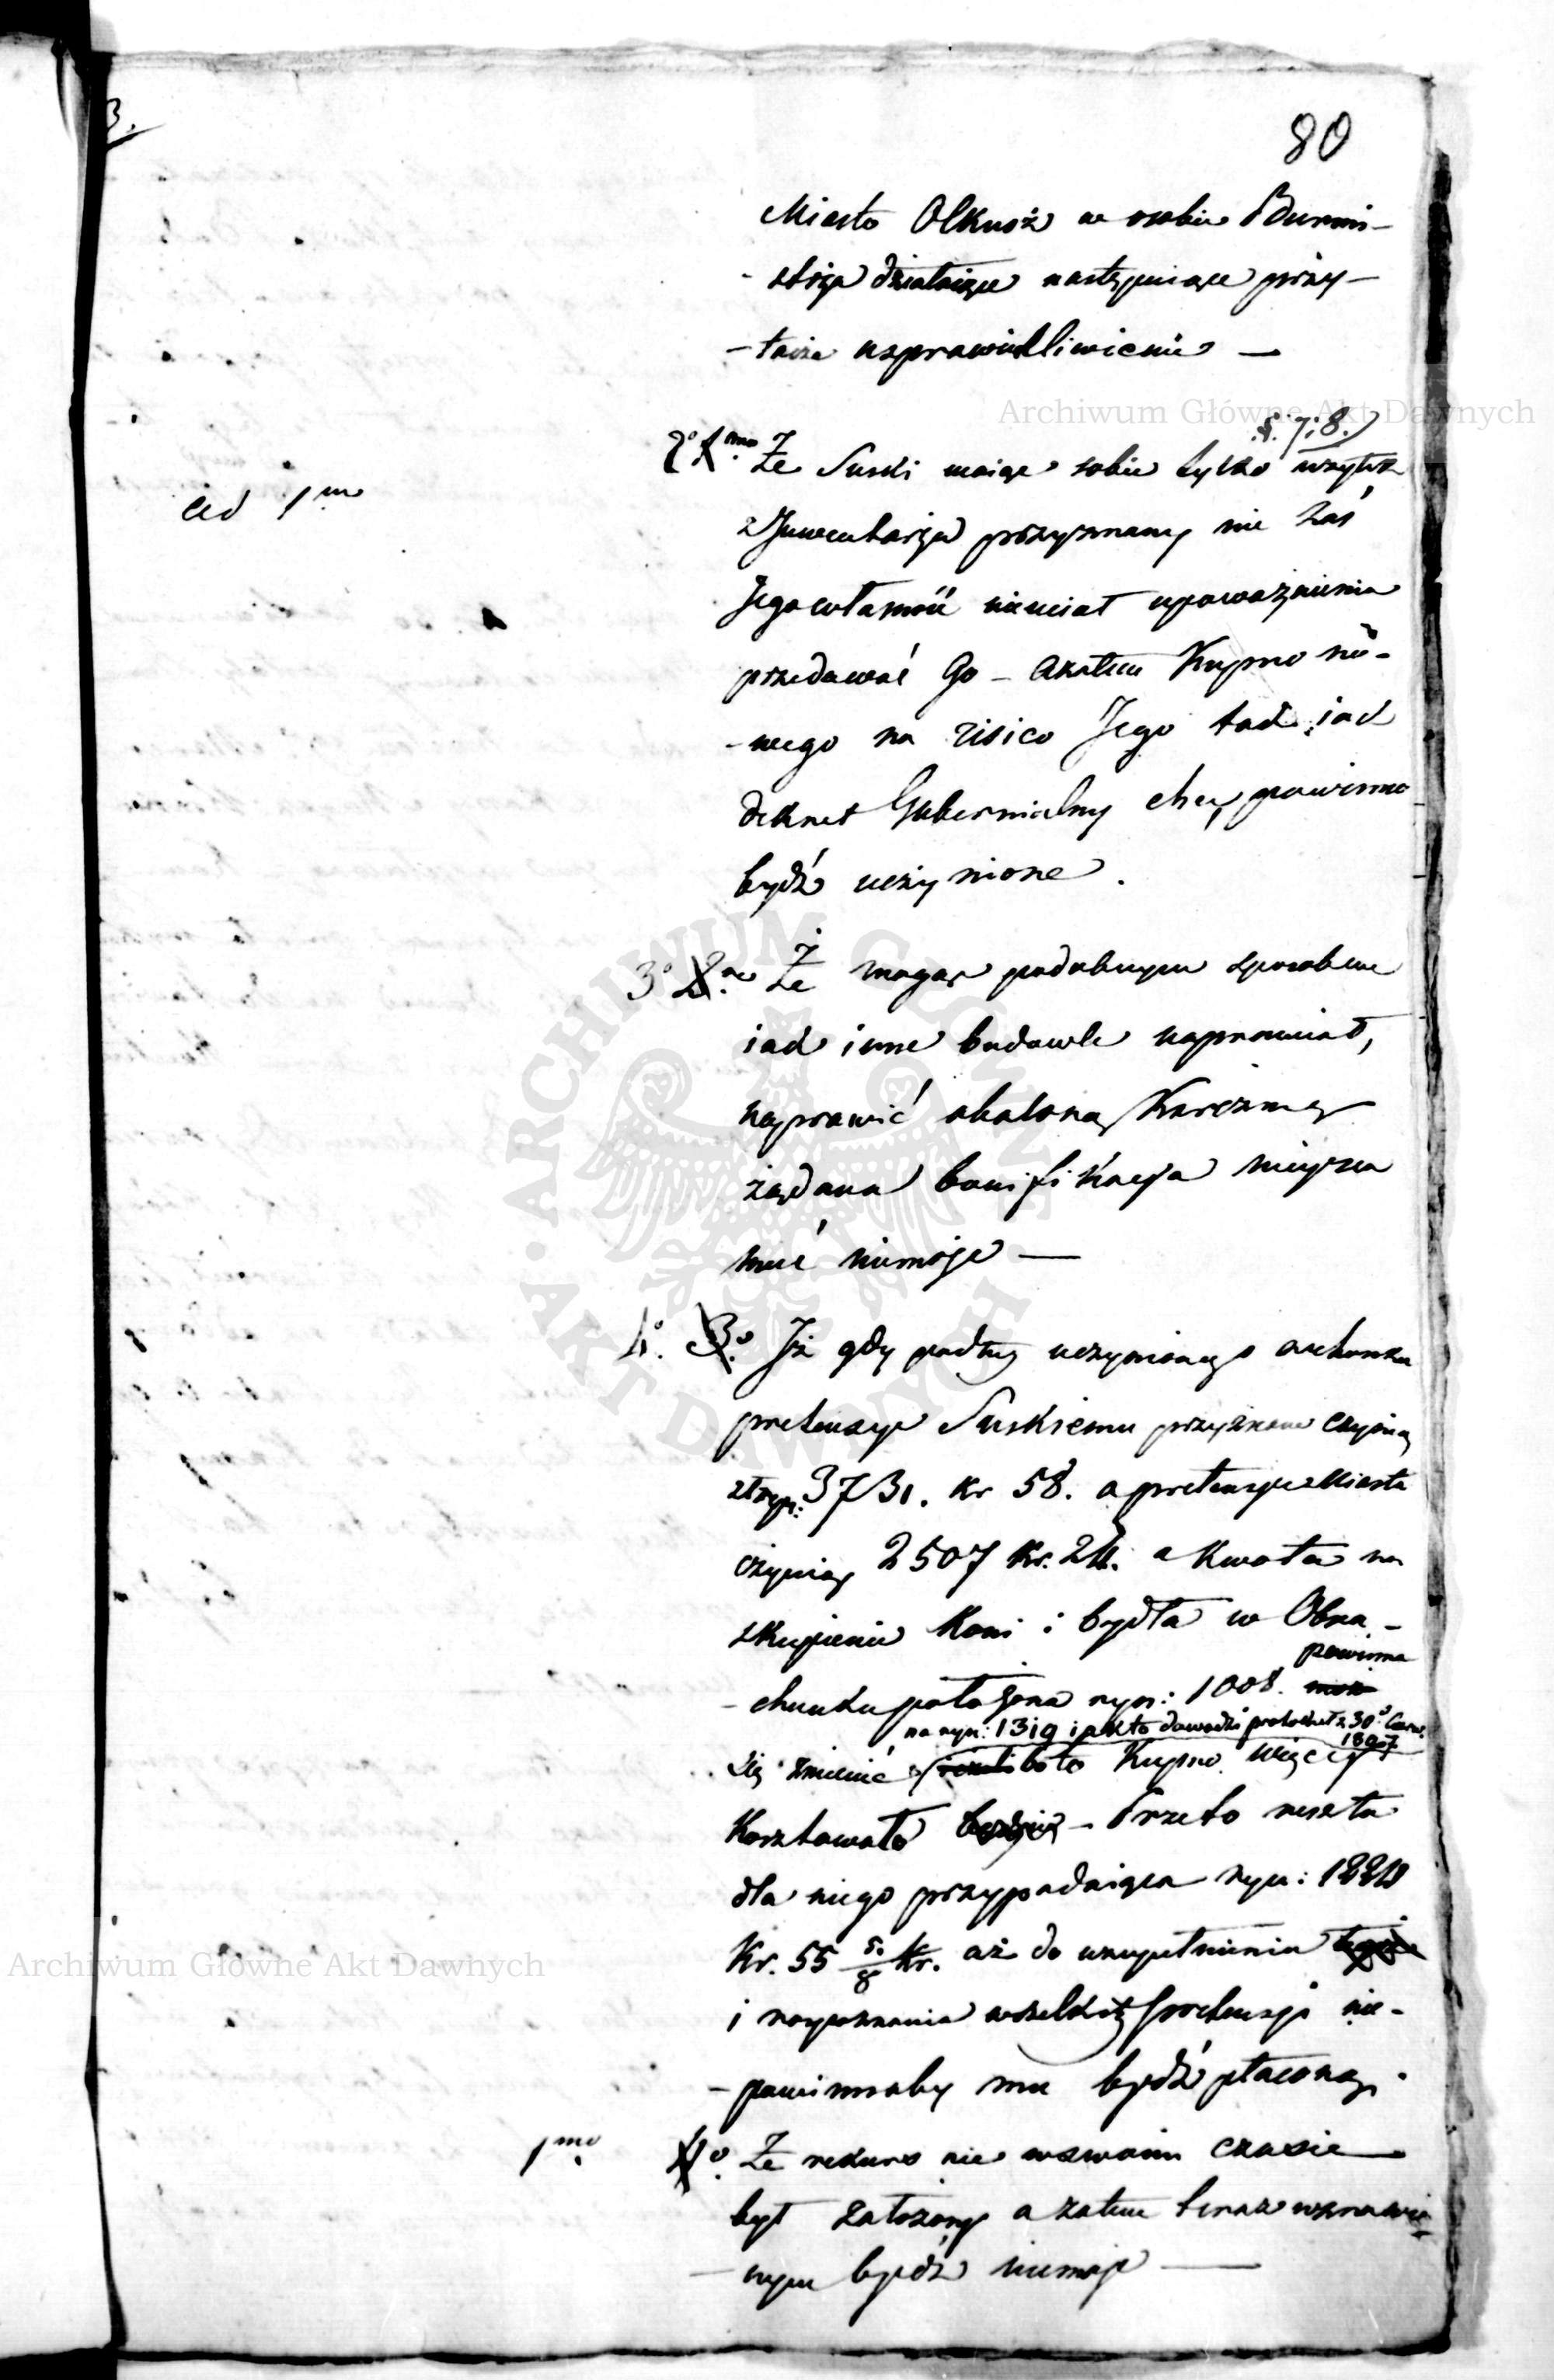 3.
80
Miasto Olkusz w osobie Burmi-
-strza działaiące następuiące przy-
-tacza usprawiedliwienie —
§. 7. 8.)
2° 1mo Że Suski maiąc sobie tylko użytek
ad 1mo
z Inwentarza przyznany nie zaś
Jego własność niemiał upoważnienia
przedawać Go – azatem Kupno no-
-wego na risico Jego tak iak
dekret Gubernialny chce, powinno
bydź uczynione.
3° 2do Że mogąc podobnym sposobem
iak inne budowle naprawiał,
naprawić obaloną Karczmę
żądana bonifikacya mieysca
mieć niemoże —
4°. 3°. Iż gdy podług uczynionego rachunku
pretensye Suskiemu przyznane czynią
złryn: 3731. kr 58. a pretensye Miasta
czynią 2507 kr. 24. a kwota na
skupienie koni i bydła w Obra-
powinna
-chunku położona ryn: 1008.
na ryn: 1319 iak to dowodzi protokół z 30° Czerw. 1807
się zmienić bo to Kupno więcey
kosztowało – Przeto reszta
dla niego przypadaiąca ryn: 1224
Kr. 55 5/8 kr. aż do uzupełnienia
i rozpoznania wszelkich pretensyi nie-
-powinnaby mu bydź płaconą.
1mo 4° Że rekurs nie wswoim czasie
był założony a zatem teraz wznowio-
-nym bydź niemoże —
Archiwum Główne Akt Dawnych
Archiwum Główne Akt Dawnych
· ARCHIWUM GŁÓWNE · AKT DAWNYCH